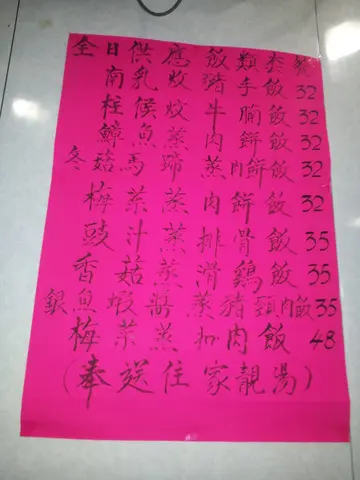 全日供應飯類套餐
南乳炆豬手飯 32
柱侯炆牛腩飯 32
鱆魚蒸肉餅飯 32
冬菇馬蹄蒸肉餅飯 32
梅菜蒸肉餅飯 32
豉汁蒸排骨飯 35
香菇蒸滑鷄飯 35
銀魚蝦醬蒸豬頸肉飯 35
梅菜蒸扣肉飯 48
(奉送住家靚湯)